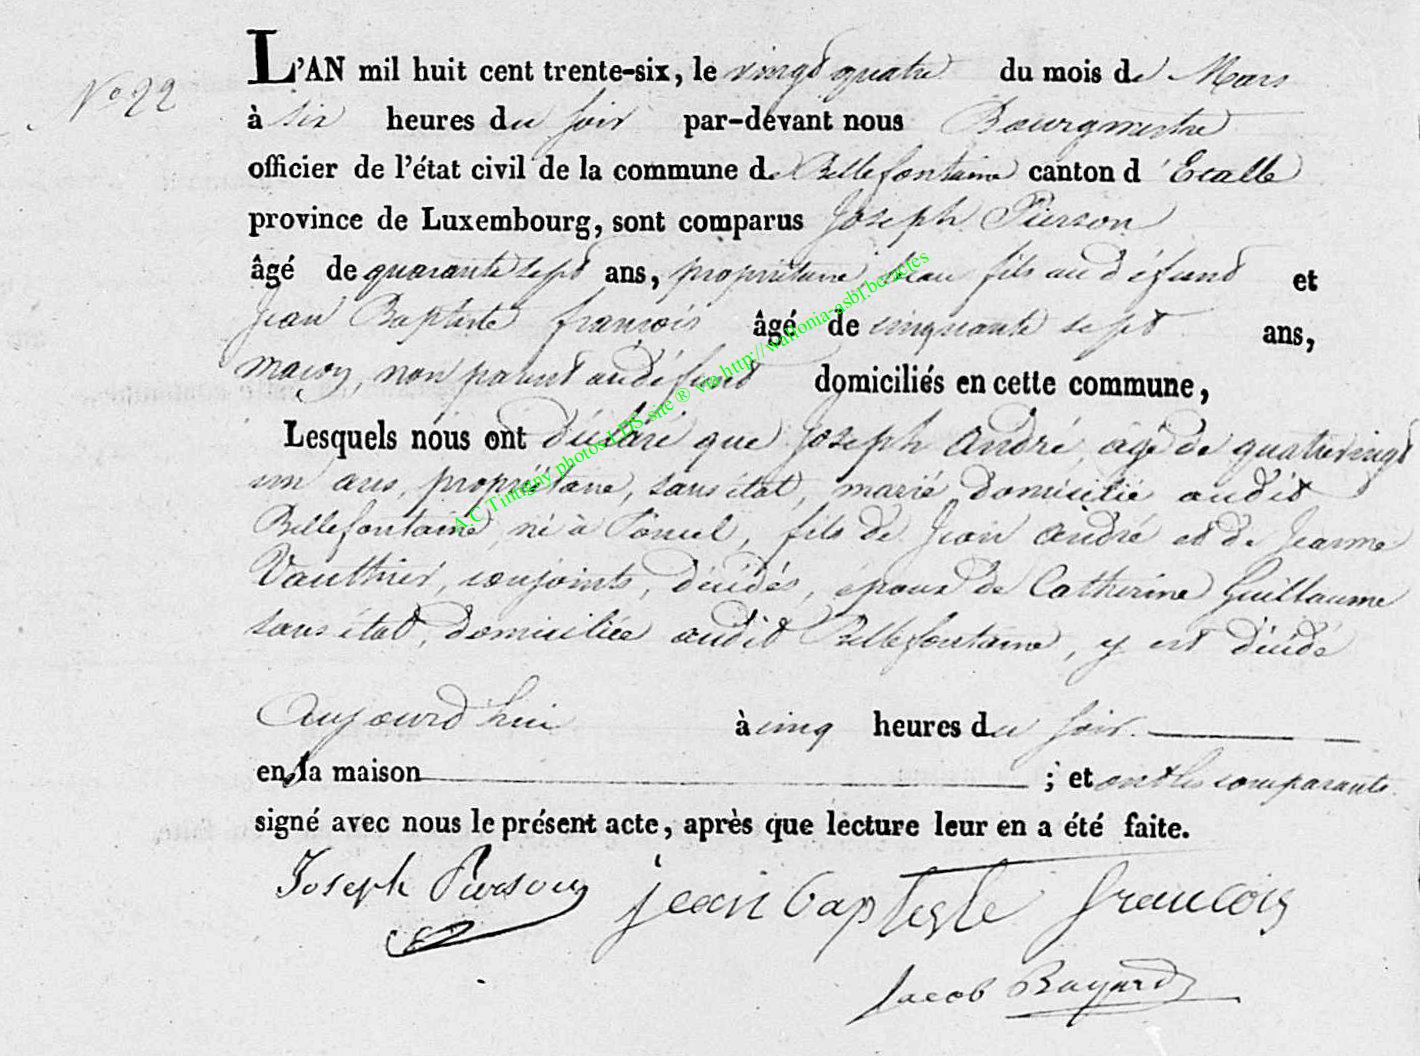 No 22
L'AN mil huit cent trente-six, le vingt quatre du mois de Mars
à six heures du soir par-devant nous Bourgmestre
officier de l'état civil de la commune de Bellefontaine canton d'Etalle
province de Luxembourg, sont comparus Joseph Pierson
âgé de quarante sept ans, propriétaire, beau fils au défunt et
Jean Baptiste françois âgé de cinquante sept ans,
maçon, non parent au défunt domiciliés en cette commune,
Lesquels nous ont déclaré que Joseph André, agé de quatrevingt
un ans, propriétaire, sans état, marié, domicilié audit
Bellefontaine, né à fils de Jean André et de Jeanne
Vauthier, conjoints, décédés, époux de Catherine Guillaume
sans état, domiciliée audit Bellefontaine, y est décédé
Aujourd'hui à cinq heures du soir.
en sa maison ; et ont les comparants
signé avec nous le présent acte, après que lecture leur en a été faite.
Joseph Pierson jean baptiste francois
Jacob Bayard
A.C Tintigny photos LDS site ® via http://wallonia-asbl.be/actes